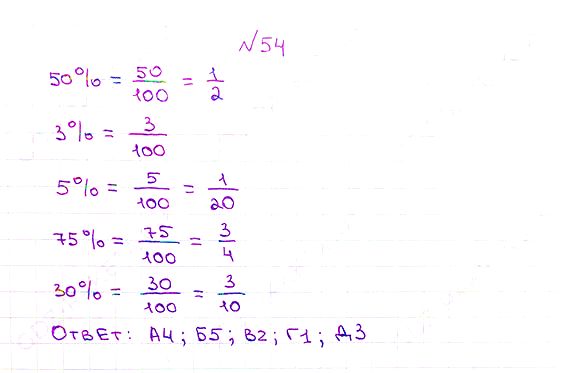 №54
50% = 50/100 = 1/2
3% = 3/100
5% = 5/100 = 1/20
75% = 75/100 = 3/4
30% = 30/100 = 3/10
Ответ: А4; Б5; В2; Г1; Д3